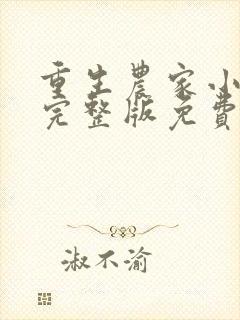 重生農家小
完整版免費
淑不渝